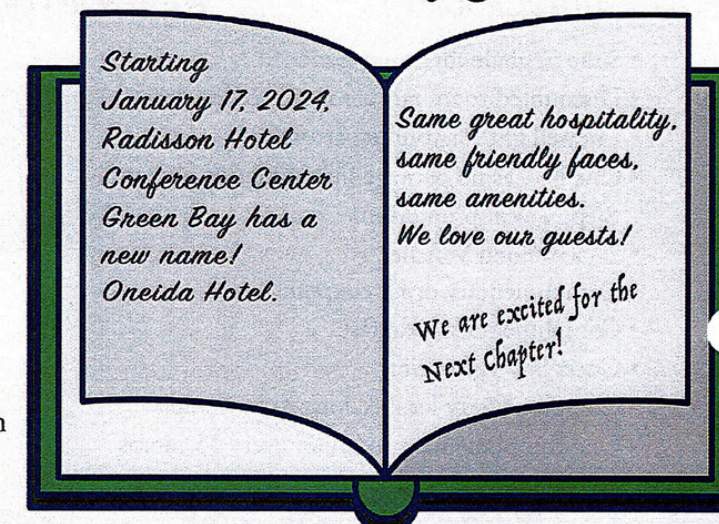 Starting
January 17, 2024,
Radisson Hotel
Conference Center
Green Bay has a
new name!
Oneida Hotel.
Same great hospitality,
same friendly faces,
same amenities.
We love our guests!
We are excited for the
Next Chapter!